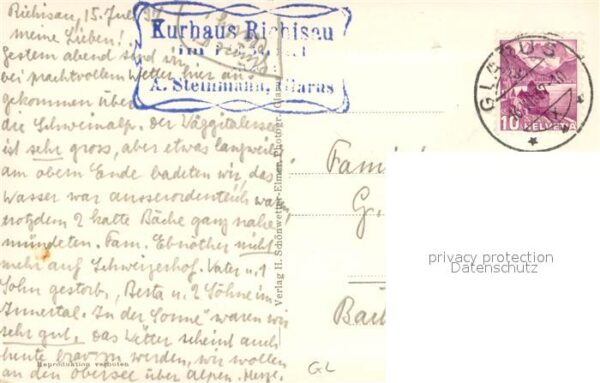 Richisau, 15. Juli 37
meine Lieben!
Gestern abend sind wir
bei prachtvollem Wetter hier an-
gekommen über
die Schweinalp. Der Väggitalersee
ist sehr gross, aber etwas langweilig
am obern Ende badeten wir, das
Wasser war ausserordentlich warm
trotzdem 2 kalte Bäche ganz nahe
mündeten. Fam. Ebnöther nicht
mehr auf Schweigshof. Vater u. 1
Sohn gestorb., Berta u. 2 Söhne im
Innertal. In der "Sonne" waren wir
sehr gut, das Wetter scheint auch
heute werden, wir wollen
an den Obersee über Alpen.
Reproduktion verboten
Kurhaus Richisau
A. Steinmann, Glarus
Verlag H. Schönwetter-Elmer, Photogr., Glarus
GLARUS
10 HELVETIA
Fami
G.
Ba
privacy protection
Datenschutz
GL